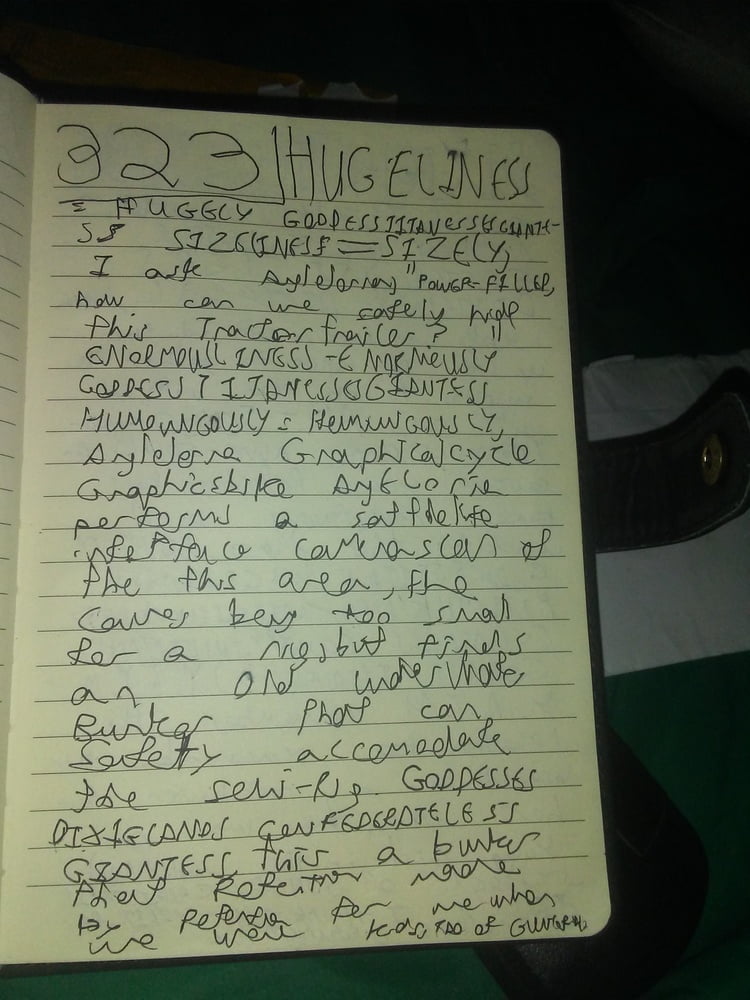 323 HUGELINESS
= HUGELY GODDESSTITANESSESGIANTE-
SS SIZELINESS = SIZELY,
I ask "POWER-FILLED,
how can we safely hide
this Tractortrailer?"
ENORMOUSLINESS - ENORMEUSLY
GODDESSTITANESSESGIANTESS
HUMOUNGOUSLY = HUMUNGOUSLY,
Graphicalcycle
Graphicsbike
performs a sattelite
interface camerascan of
the this area, the
Caves being too small
for a rig, but finds
an old
Bunker that can
Safetly accomodate
the semi-Rig. GODDESSES
DIXIELANDS CONFEDERATELESS
GIANTESS, This a bunker
that made
by for me when
we were kids, TAO OF